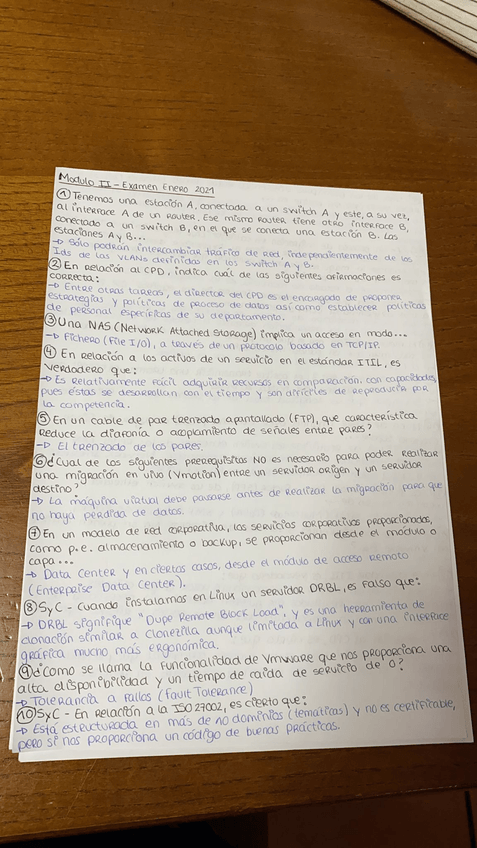 Modulo II - Examen Enero 2021
① Tenemos una estación A, conectada a un switch A y este, a su vez,
al interface A de un Router. Ese mismo Router tiene otro interface B,
conectado a un switch B, en el que se conecta una estación B. Las
estaciones A y B...
→ Sólo podrán intercambiar tráfico de red, independientemente de los
Ids de las VLANs definidas en los switch A y B.
② En relación al CPD, indica cuál de las siguientes afirmaciones es
correcta:
→ Entre otras tareas, el director del CPD es el encargado de proponer
estrategias y políticas de proceso de datos así como establecer políticas
de personal específicas de su departamento.
③ Una NAS (Network Attached Storage) implica un acceso en modo...
→ Fichero (File I/O), a través de un protocolo basado en TCP/IP.
④ En relación a los activos de un servicio en el estándar ITIL, es
verdadero que:
→ Es relativamente fácil adquirir recursos en comparación con capacidades,
pues éstas se desarrollan con el tiempo y son difíciles de reproducir por
la competencia.
⑤ En un cable de par trenzado apantallado (FTP), que característica
reduce la diafonía o acoplamiento de señales entre pares?
→ El trenzado de los pares.
⑥ ¿Cual de los siguientes prerrequisitos NO es necesario para poder realizar
una migración en vivo (Vmotion) entre un servidor origen y un servidor
destino?
→ La máquina virtual debe pausarse antes de realizar la migración para que
no haya pérdida de datos.
⑦ En un modelo de red corporativa, los servicios corporativos proporcionados,
como p.e. almacenamiento o backup, se proporcionan desde el módulo o
capa...
→ Data Center y en ciertos casos, desde el módulo de acceso remoto
(Enterprise Data Center).
⑧ SyC - Cuando instalamos en Linux un servidor DRBL, es falso que:
→ DRBL signifique "Dupe Remote Block Load", y es una herramienta de
clonación similar a Clonezilla aunque limitada a Linux y con una interfice
gráfica mucho más ergonómica.
⑨ ¿Como se llama la funcionalidad de Vmware que nos proporciona una
alta disponibilidad y un tiempo de caída de servicio de 0?
→ Tolerancia a fallos (fault Tolerance)
⑩ SyC - En relación a la ISO 27002, es cierto que:
→ Está estructurada en más de 10 dominios (temáticas) y no es certificable,
pero si nos proporciona un código de buenas prácticas.